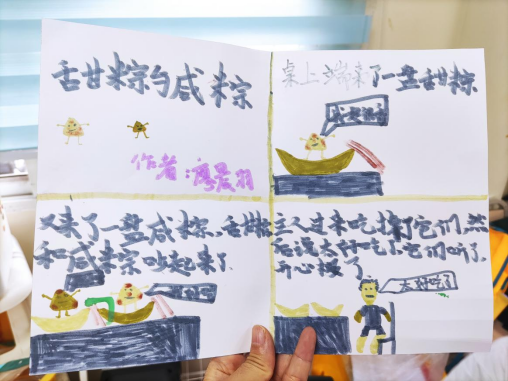 甜粽与咸粽
作者:廖晨羽
桌上端来了一盘甜粽
我是甜
又来了一盘咸粽,甜粽
和咸粽吵起来了
主人过来吃掉了它们,然
后说太好吃了,它们听了,
开心极了
太好吃了